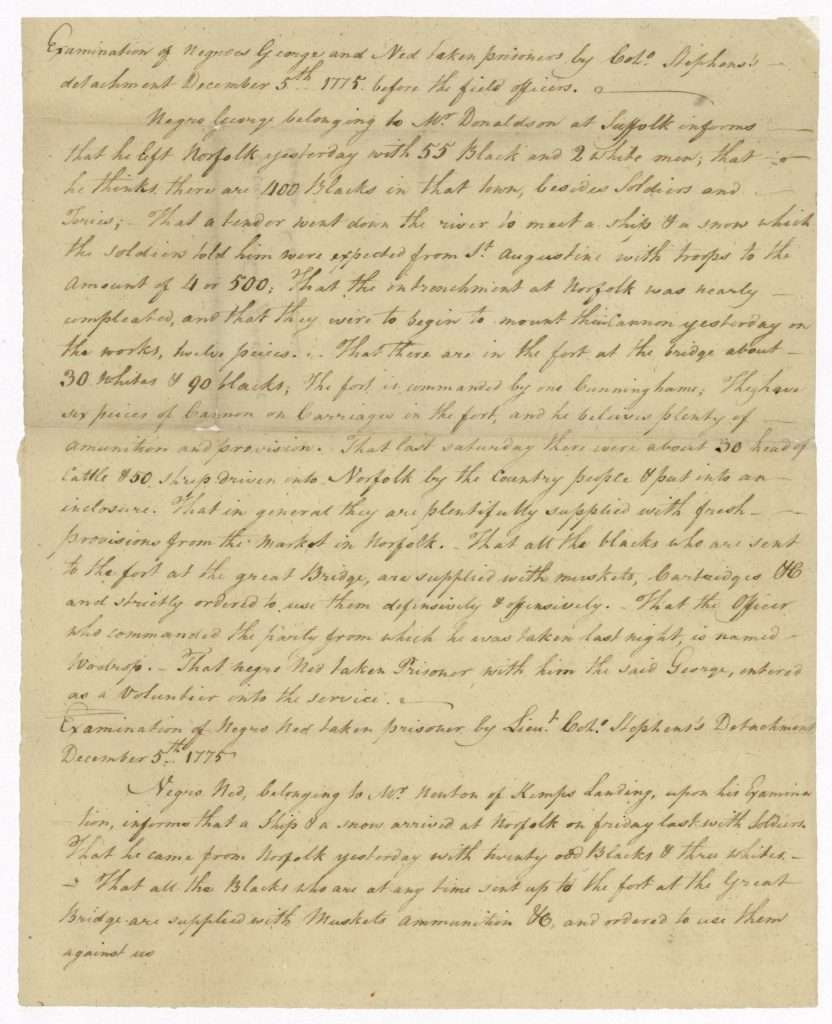 Examination of Negroes George and Ned taken prisoners by Colo. Stephens's
detachment December 5th 1775 before the field officers.
Negro George belonging to Mr Donaldson at Suffolk informs
that he left Norfolk yesterday with 55 Black and 2 white men; that
he thinks there are 400 Blacks in that town, besides Soldiers and
Tories; - That a tender went down the river to meet a ship & a snow which
the soldiers told him were expected from St Augustine with troops to the
amount of 4 or 500; That the intrenchment at Norfolk was nearly
compleated, and that they were to begin to mount their Cannon yesterday on
the works, twelve peices. .. That there are in the fort at the bridge about
30 Whites & 90 blacks; The fort is commanded by one Cunninghame; They have
six peices of Cannon on Carriages in the fort, and he beleives plenty of
amunition and provision. That last saturday there were about 30 head of
Cattle & 50 sheep driven into Norfolk by the Country people & put into an
inclosure. That in general they are plentifully supplied with fresh
provisions from the market in Norfolk. - That all the blacks who are sent
to the fort at the great Bridge, are supplied with muskets, Cartridges &C
and strictly ordered to use them defensively & offensively. - That the Officer
who commanded the party from which he was taken last night, is named
Wodrop. - That negro Ned taken Prisoner with him the said George, entered
as a Voluntier into the service.
Examination of Negro Ned taken prisoner by Lieut Colo. Stephens's Detachment
December 5th 1775
Negro Ned, belonging to Mr. Newton of Kemps Landing, upon his Examina
tion, informs that a Ship & a snow arrived at Norfolk on friday last with Soldiers.
That he came from Norfolk yesterday with twenty odd Blacks & three whites. -
- That all the Blacks who are at any time sent up to the fort at the Great
Bridge are supplied with Muskets ammunition &C, and ordered to use them
against us